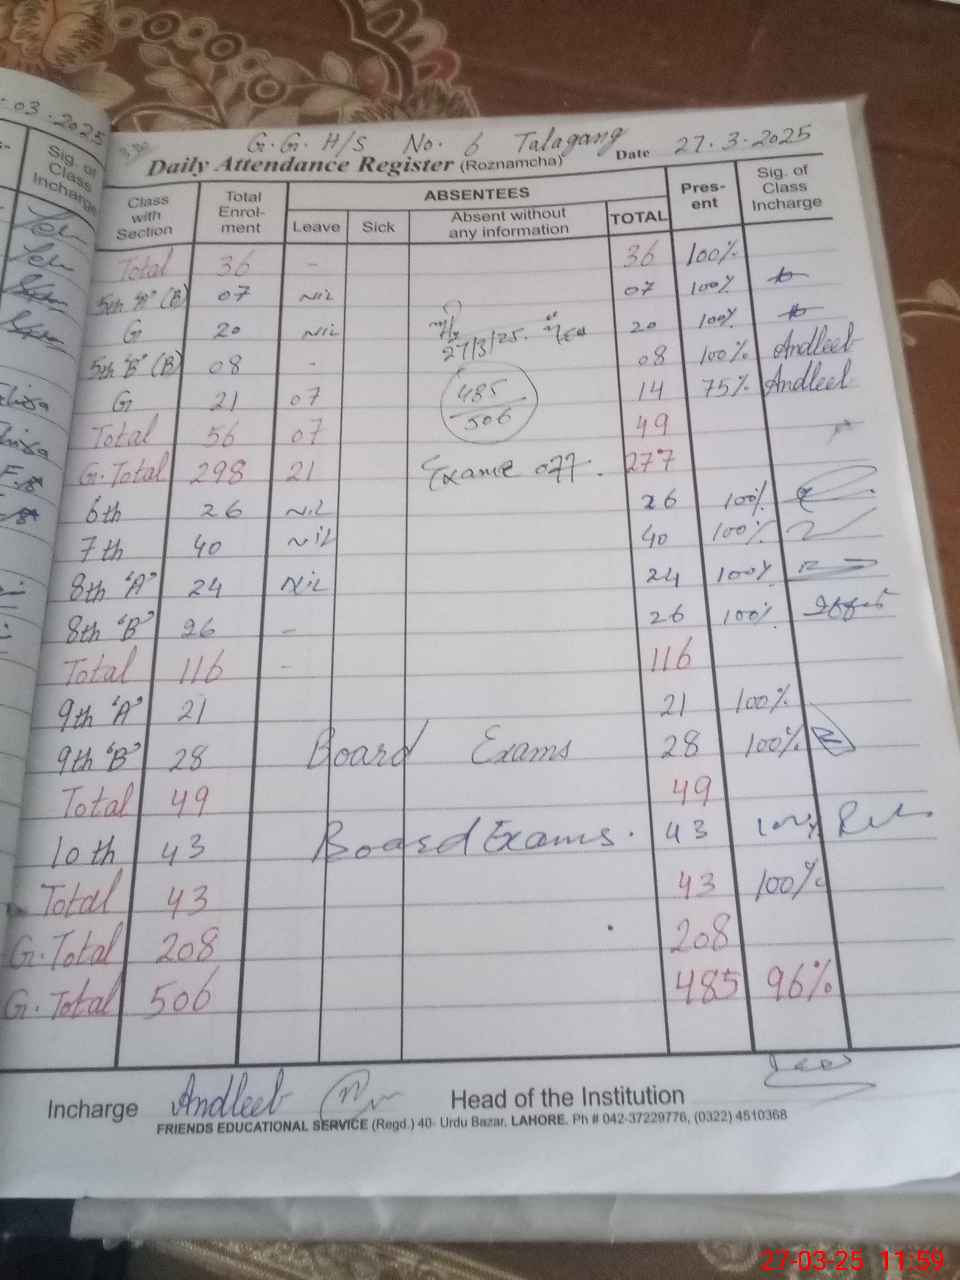 03.2025
Sig. of
Class
Incharge
G.G.H/S No. 6 Talagang
Daily Attendance Register (Roznamcha) Date 27.3.2025
Class with Section Total Enrol-ment ABSENTEES Pres-ent Sig. of Class Incharge
Leave Sick Absent without any information TOTAL
Total 36 - 36 100%
5th "A" (B) 07 Nil 07 100%
G 20 Nil 20 100%
27/3/25.
5th "B" (B) 08 - 08 100% Andleeb
G 21 07 485/506 14 75% Andleeb
Total 56 07 49
G.Total 298 21 277
6th 26 Nil 26 100%
7th 40 Nil 40 100%
8th "A" 24 Nil 24 100%
8th "B" 26 - 26 100%
Total 116 - 116
9th "A" 21 21 100%
9th "B" 28 Board Exams 28 100%
Total 49 49
10th 43 Board Exams. 43
Total 43 43 100%
G.Total 208 208
G.Total 506 485 96%
Incharge Andleeb Head of the Institution
FRIENDS EDUCATIONAL SERVICE (Regd.) 40- Urdu Bazar, LAHORE. Ph # 042-37229776, (0322) 4510368
27-03-25 11:59